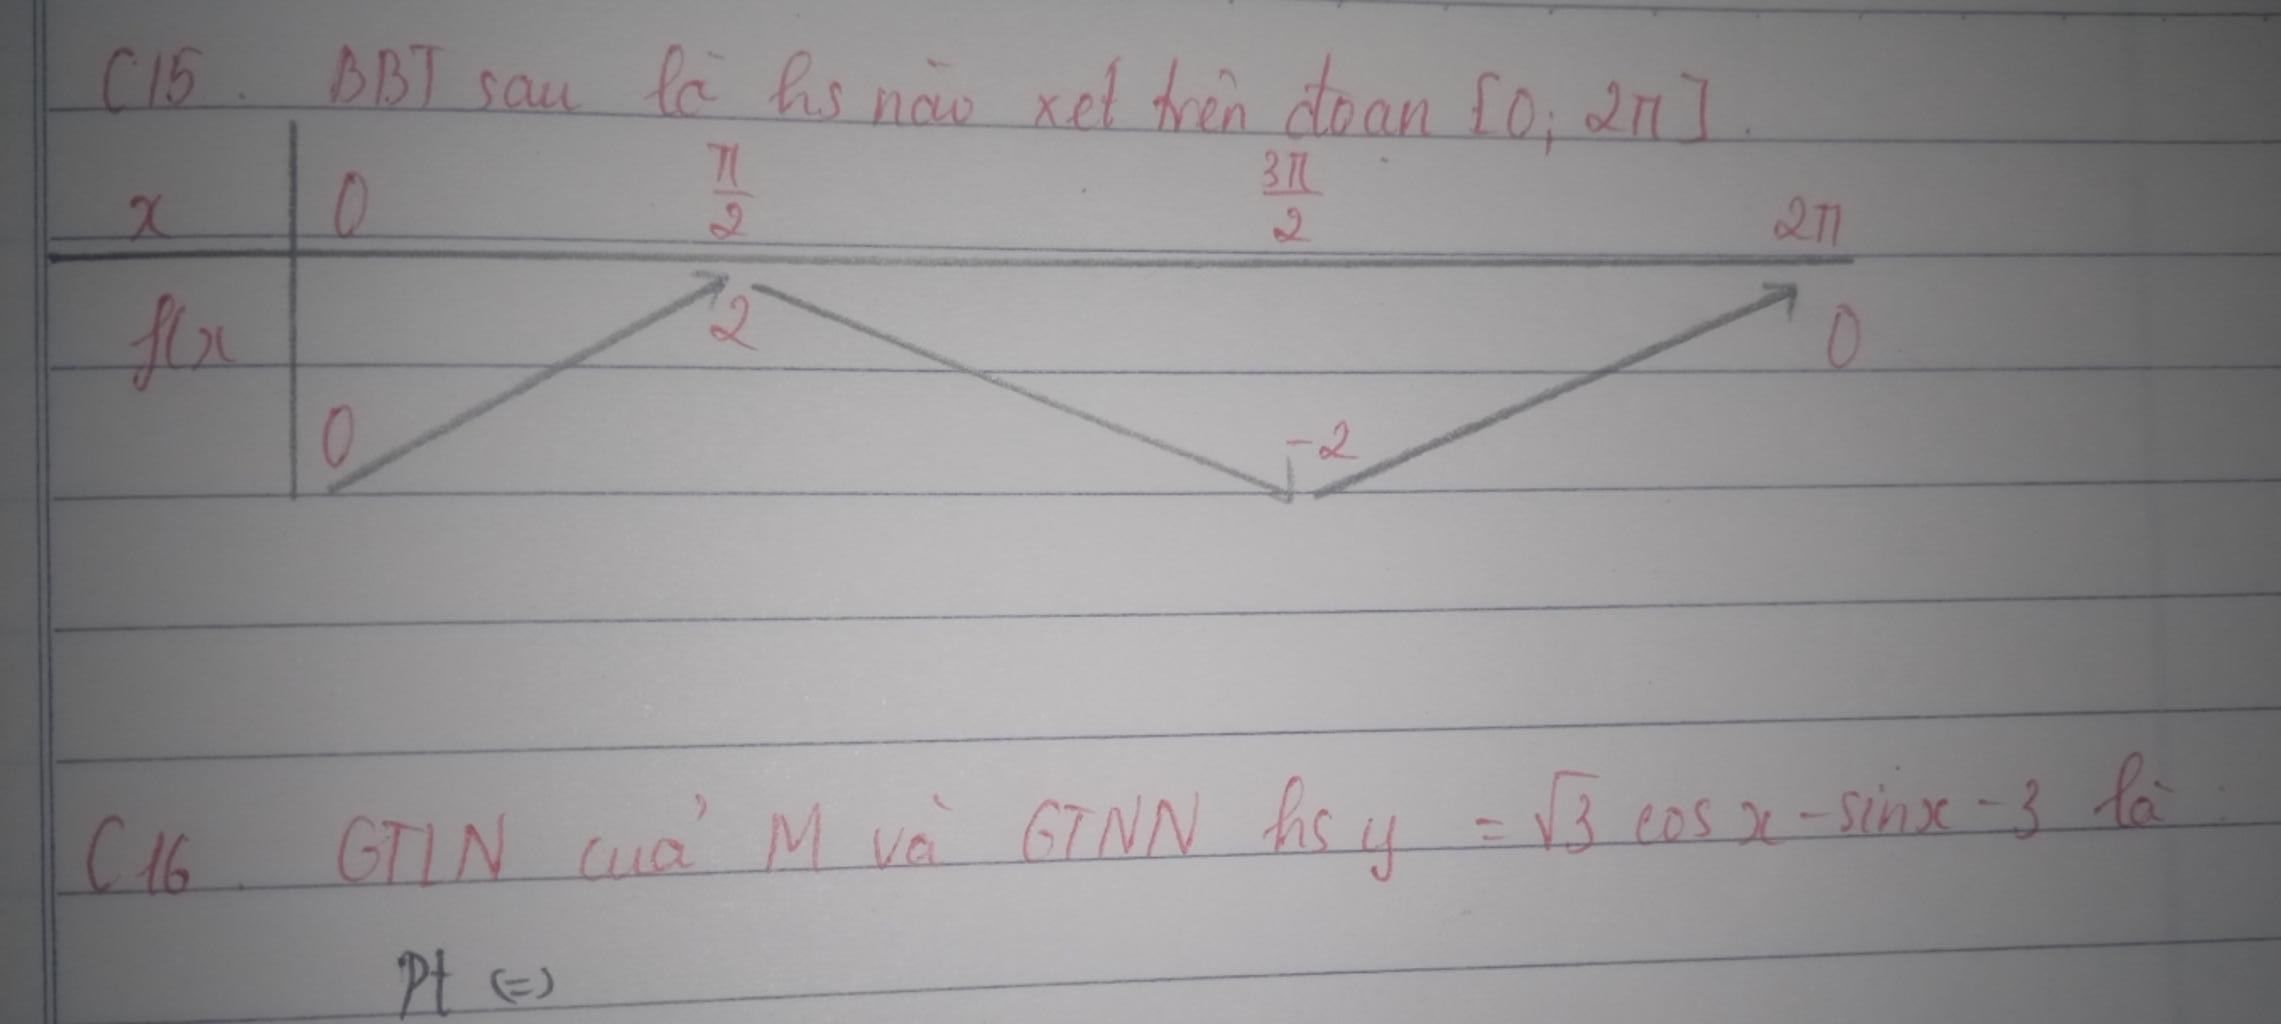 C15. BBT sau là hs nào xet trên đoan [0; 2π].
x 0 π/2 3π/2 2π
f(x 2 0
0 -2
C16. GTLN cuả M và GTNN hs y = √3 cos x - sinx - 3 là
Pt (=)